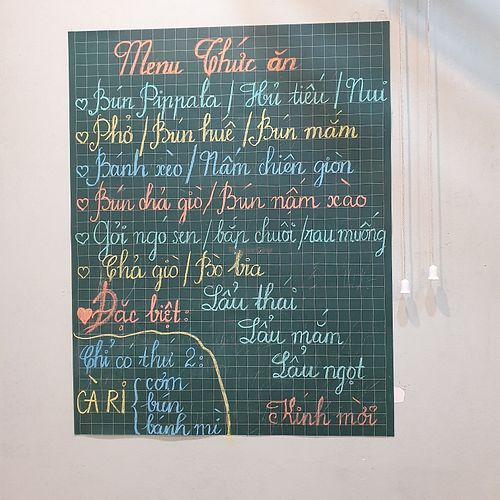 Menu Thức ăn
Bún Pippala / Hủ tiếu / Nui
Phở / Bún huế / Bún mắm
Bánh xèo / Nấm chiên giòn
Bún chả giò / Bún nấm xào
Gỏi ngó sen / bắp chuối / rau muống
Chả giò / Bò bía
Đặc biệt: Lẩu thái
Lẩu mắm
Lẩu ngọt
Chỉ có thứ 2:
CÀ RI { cơm
bún
bánh mì
Kính mời